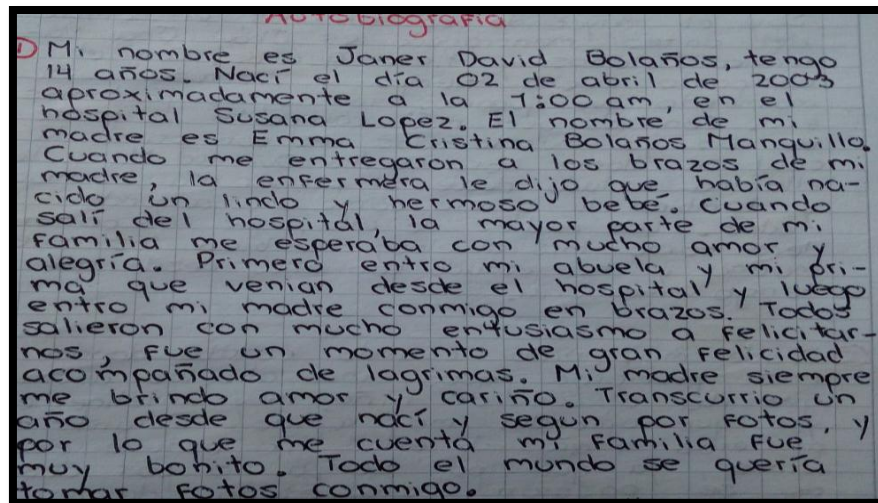 Autobiografia
① Mi nombre es Janer David Bolaños, tengo
14 años. Nací el día 02 de abril de 2003
aproximadamente a la 7:00 am, en el
hospital Susana Lopez. El nombre de mi
madre es Emma Cristina Bolaños Manquillo.
Cuando me entregaron a los brazos de mi
madre, la enfermera le dijo que había na-
cido un lindo y hermoso bebé. Cuando
salí del hospital, la mayor parte de mi
familia me esperaba con mucho amor y
alegría. Primero entro mi abuela y mi pri-
ma que venian desde el hospital y luego
entro mi madre conmigo en brazos. Todos
salieron con mucho entusiasmo a felicitar-
nos, fue un momento de gran felicidad
acompañado de lagrimas. Mi madre siempre
me brindo amor y cariño. Transcurrio un
año desde que nací y segun por fotos, y
por lo que me cuenta mi familia fue
muy bonito. Todo el mundo se quería
tomar fotos conmigo.